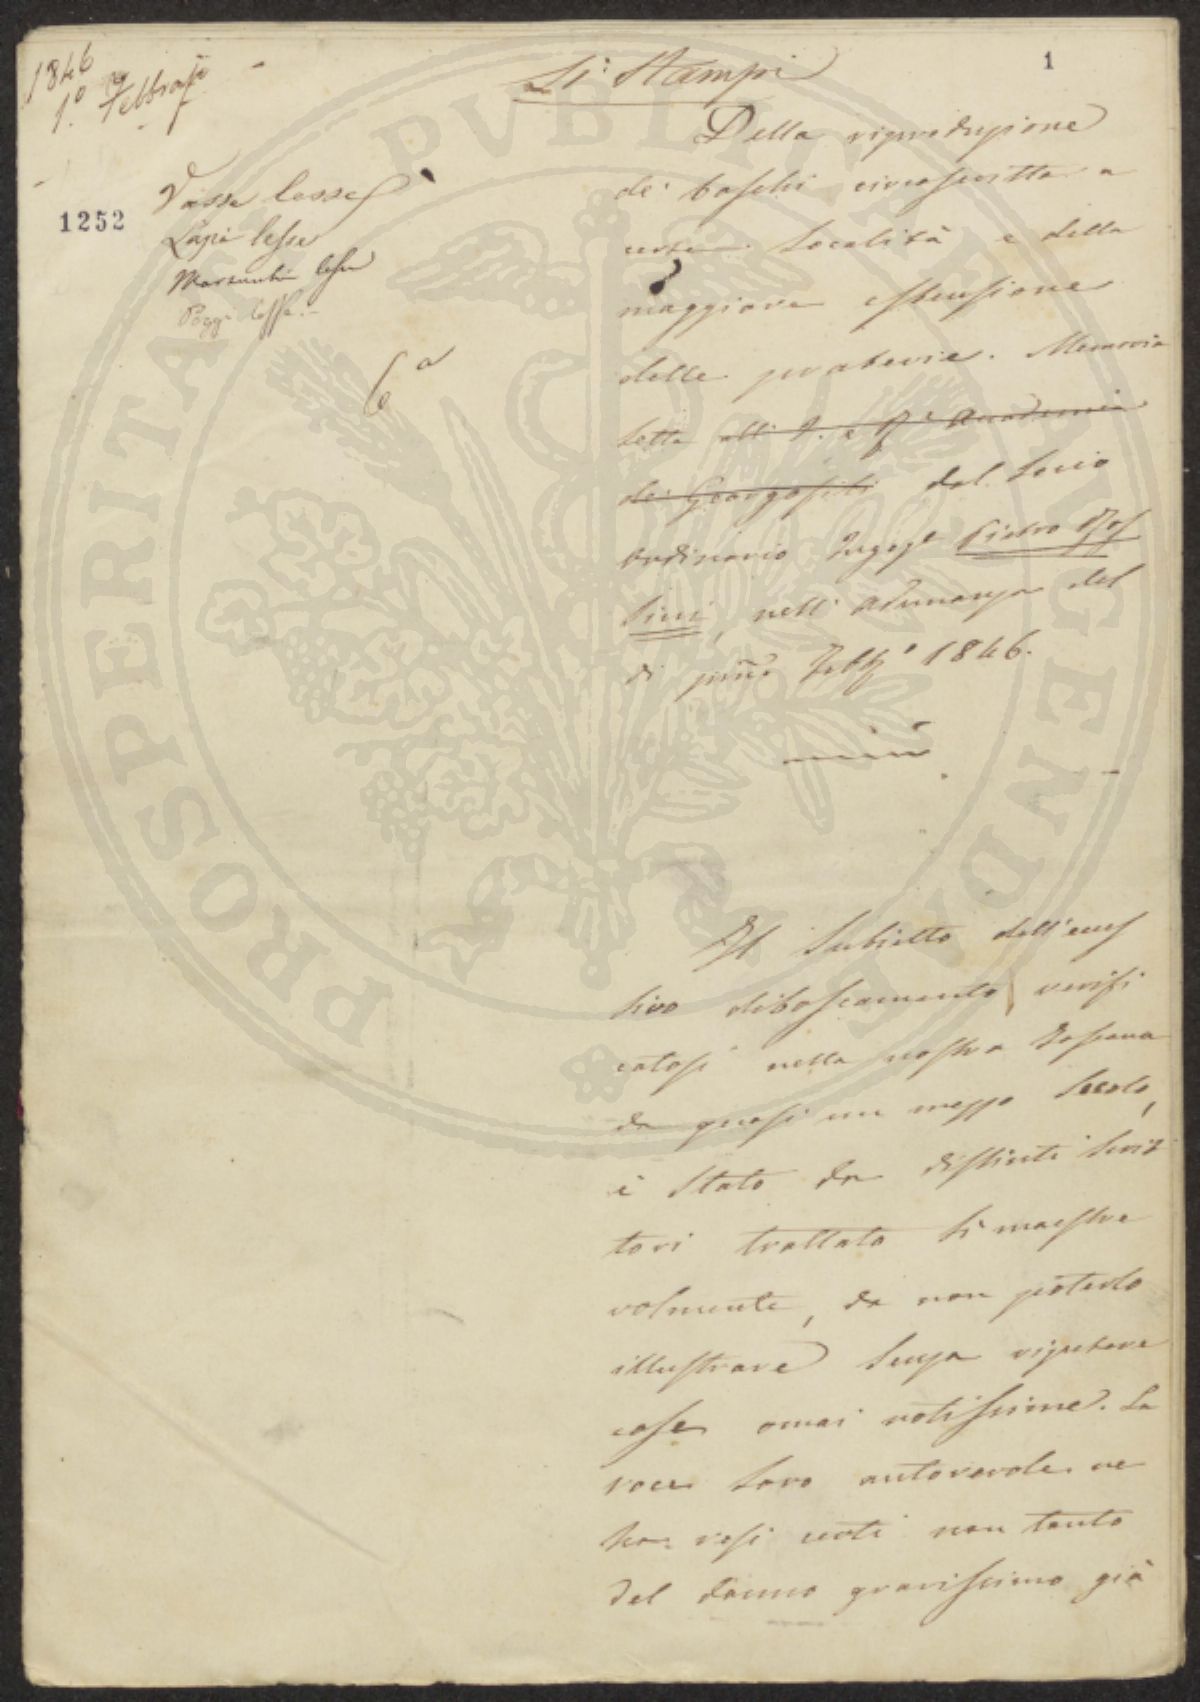 1846
1.° Febbrajo
1
Si Stampi
1252
Vasse lesse
Lapi lesse
lesse
Poggi lesse
6ª
Della riproduzione
de' boschi circoscritta a
certe località e della
maggiore estensione
delle praterie. Memoria
letta all' I. e R. Accademia
dei Georgofili dal Socio
ordinario Ingeg.e Pietro Ros
sini, nell' adunanza del
dì primo Febb.° 1846.
Il subietto dell' eces
sivo diboscamento verifi
catosi nella nostra Toscana
da quasi un mezzo secolo,
è stato da distinti scrit
tori trattato sì maestre
volmente, da non poterlo
illustrare senza ripetere
cose omai notissime. La
voce loro autorevole ne
ha resi certi non tanto
del danno gravissimo già
PROSPERITATI PVBLICAE AVGENDAE